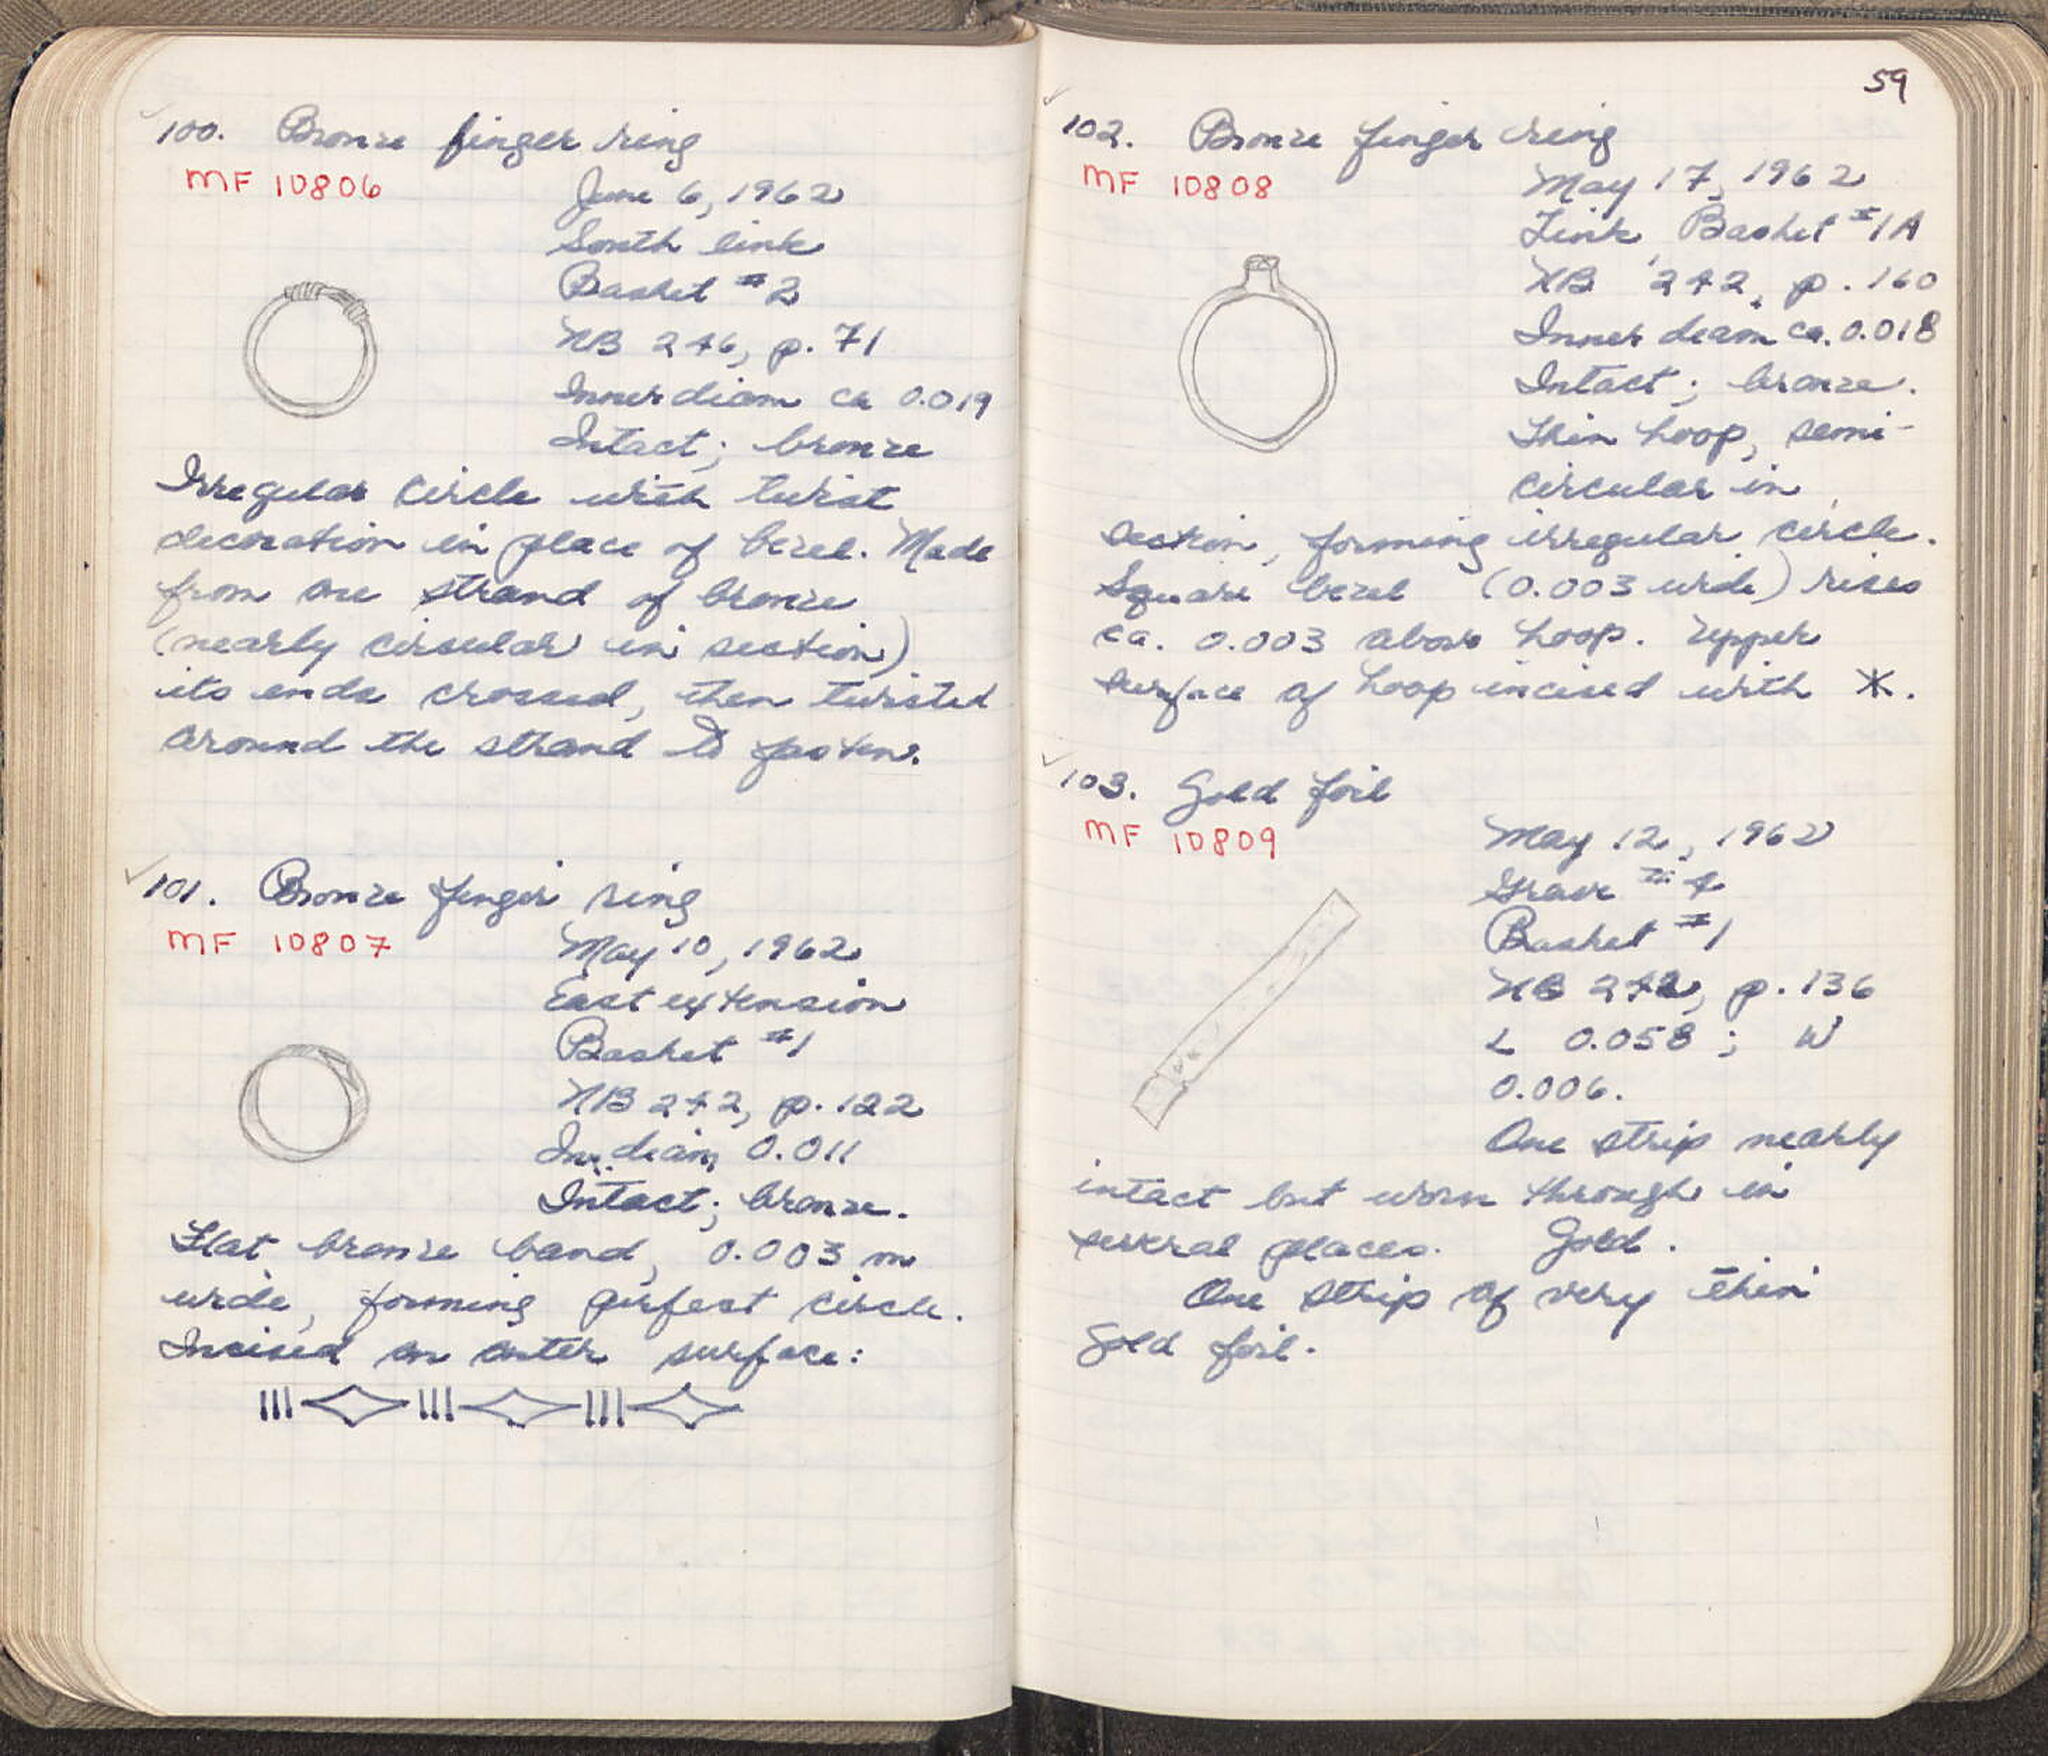 100. Bronze finger ring
MF 10806
June 6, 1962
South link
Basket #2
NB 246, p. 71
Inner diam ca 0.019
Intact; bronze
Irregular circle with twist
decoration in place of bezel. Made
from one strand of bronze
(nearly circular in section)
its ends crossed, then twisted
around the strand to fasten.
101. Bronze finger ring
MF 10807
May 10, 1962
East extension
Basket #1
NB 242, p. 122
Inn. diam 0.011
Intact; bronze.
Flat bronze band, 0.003 m
wide, forming perfect circle.
Incised on outer surface:
59
102. Bronze finger ring
MF 10808
May 17, 1962
Link, Basket #1A
NB 242, p. 160
Inner diam ca. 0.018
Intact; bronze.
Thin hoop, semi-
circular in
section, forming irregular circle.
Square bezel (0.003 wide) rises
ca. 0.003 above hoop. Upper
surface of hoop incised with *.
103. Gold foil
MF 10809
May 12, 1962
Grave # 4
Basket #1
NB 242, p. 136
L 0.058; W
0.006.
One strip nearly
intact but worn through in
several places. Gold.
One strip of very thin
gold foil.